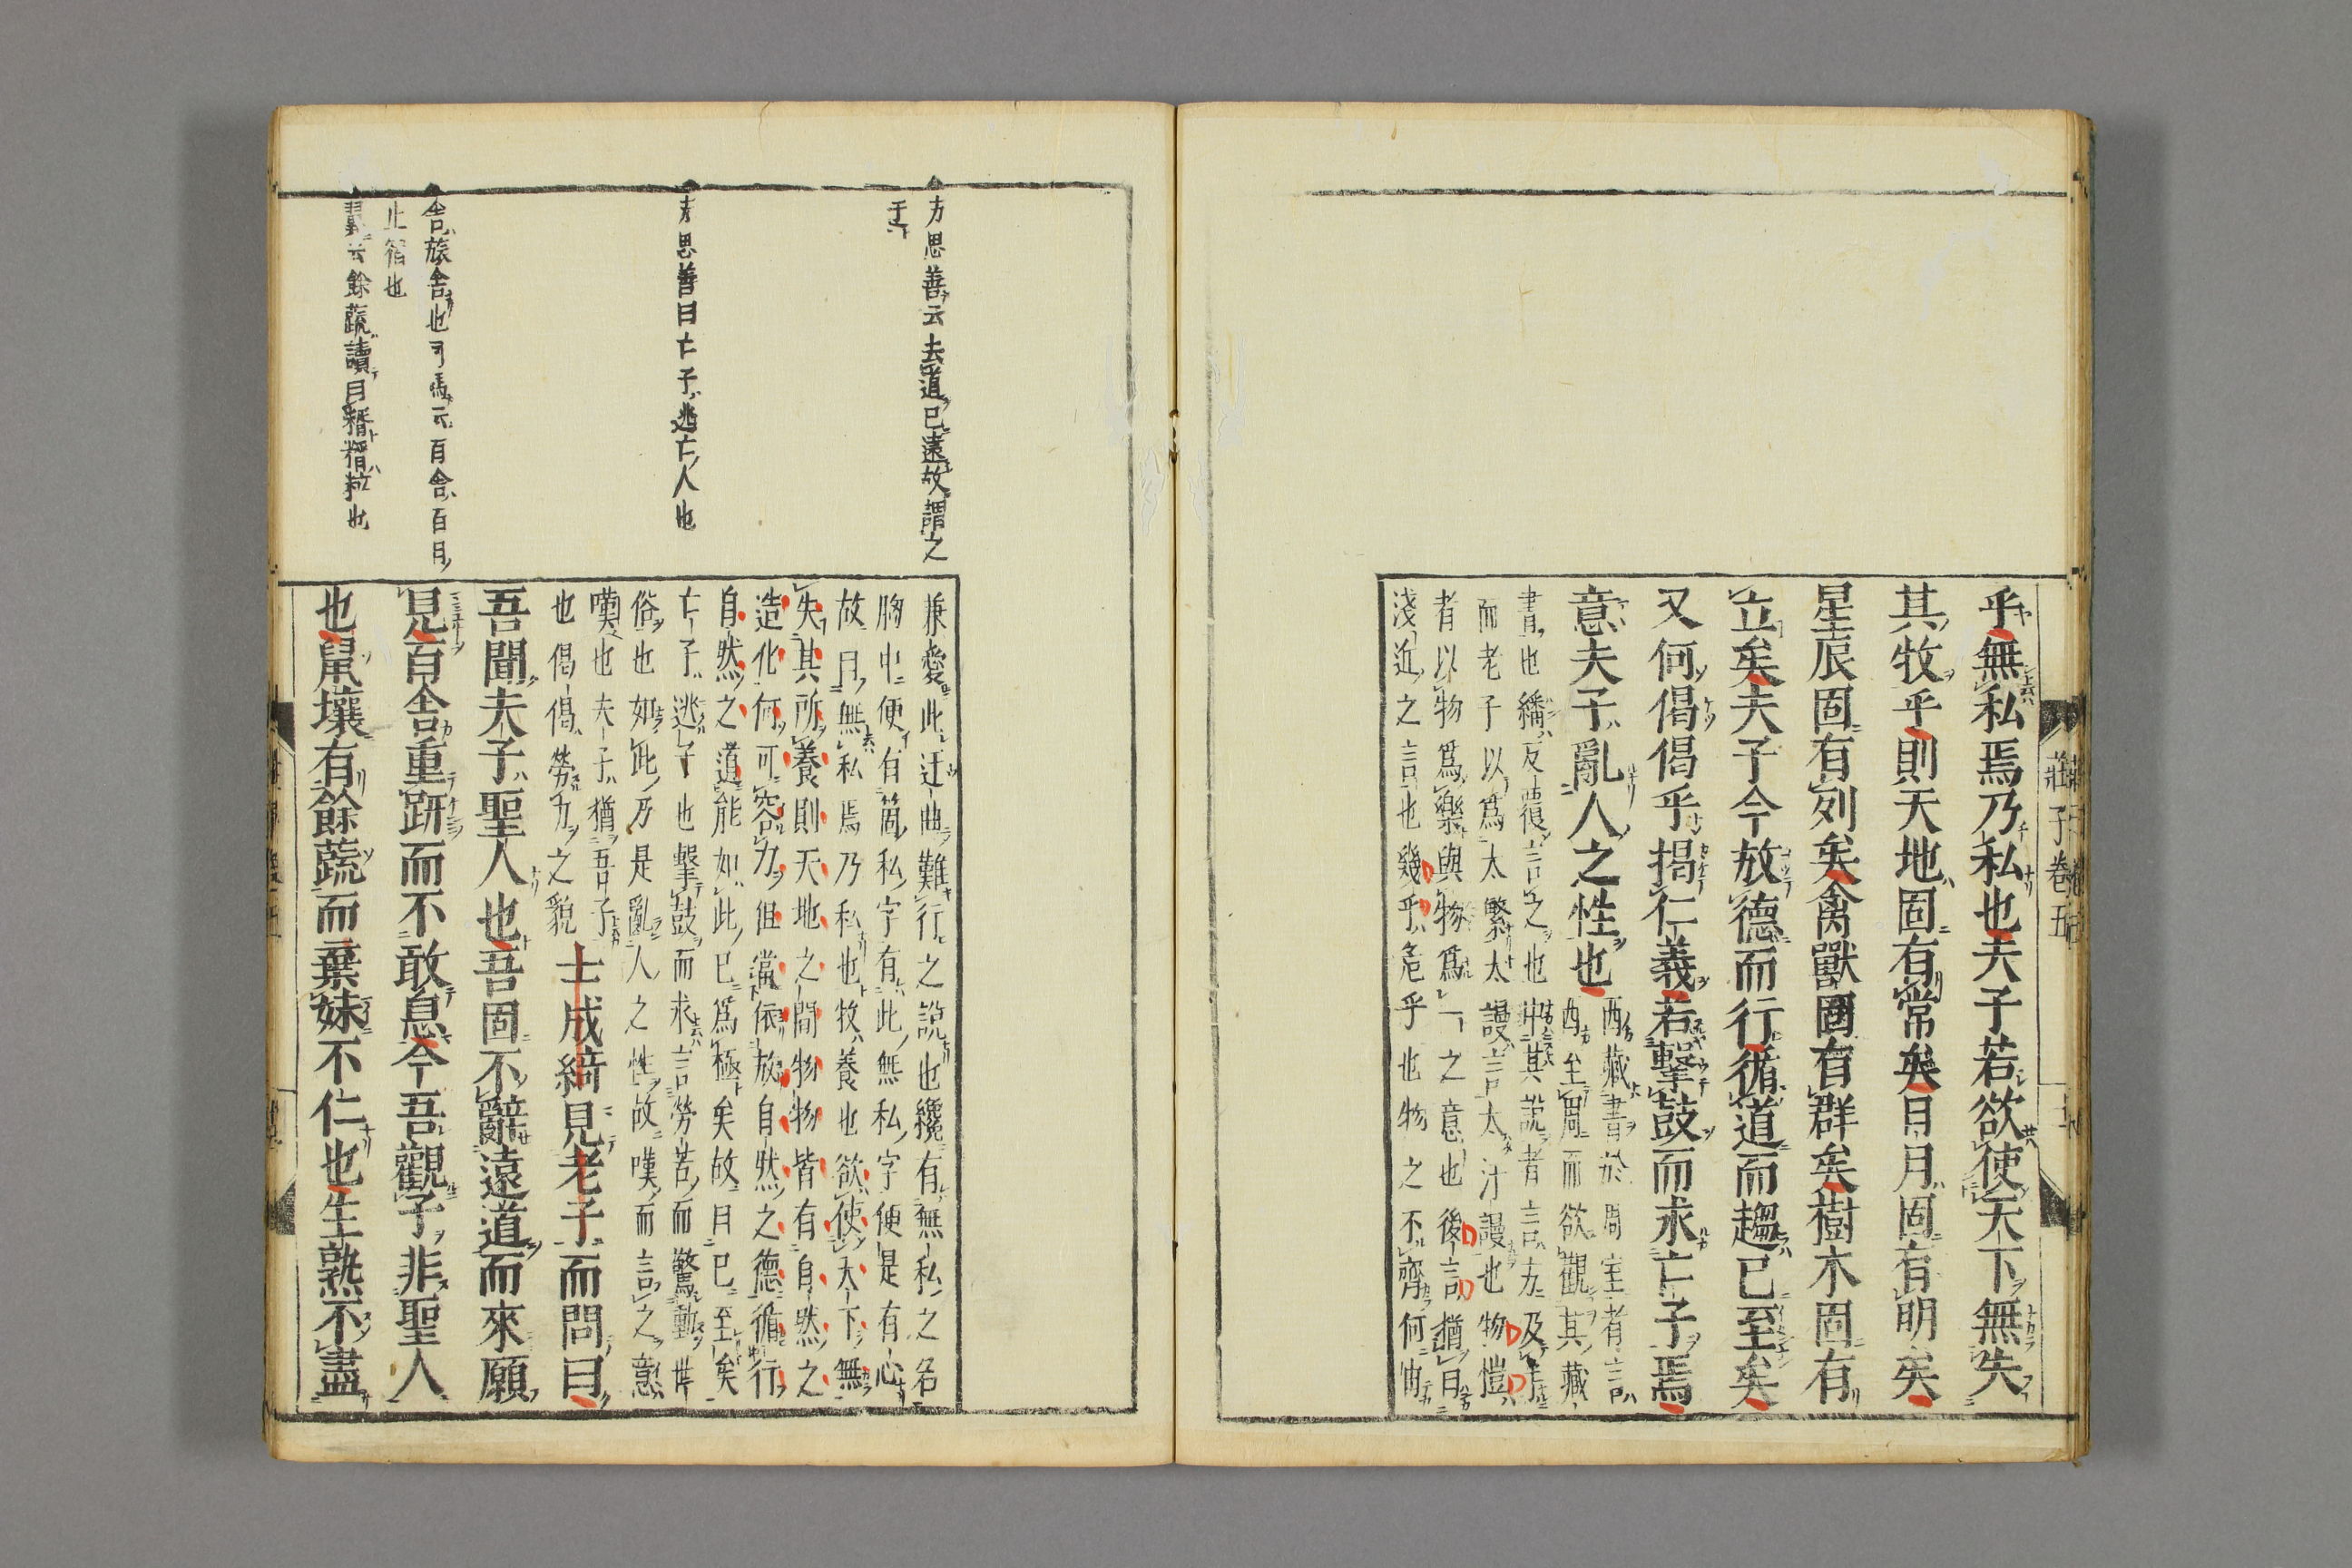 乎無私焉乃私也夫子若欲使天下無失
其牧乎則天地固有常矣日月固有明矣
星辰固有列矣禽獸固有群矣樹木固有
立矣夫子今放德而行循道而趨已至矣
又何偈偈乎揭仁義若擊鼓而求亡子焉
意夫子亂人之性也
西藏書於周室者言
西至周而欲觀其藏
書也繙反覆言之也
中其說者言方及半
而老子以為太繁太謾言太汗謾也物愷
者以物為樂與物為一之意也後言猶曰
淺近之言也幾乎危乎也物之不齊何由
莊子卷五
方思善云去道已遠故謂之
迂
方思善曰亡子逃亡人也
舍旅舍也司馬云百舍百日
止宿也
翼云餘蔬讀曰糈糈粒也
兼愛此迂曲難行之說也纔有無私之名
胸中便有箇私字有此無私字便是有心
故曰無私焉乃私也牧養也欲使天下無
失其所養則天地之間物物皆有自然之
造化何可容力但當依放自然之德循行
自然之道能如此已為極矣故曰已至矣
亡子逃子也擊鼓而求言勞苦而驚動世
俗也如此乃是亂人之性故嘆而言之意
嘆也夫子猶吾子
也偈偈勞力之貌
士成綺見老子而問曰
吾聞夫子聖人也吾固不辭遠道而來願
見百舍重趼而不敢息今吾觀子非聖人
也鼠壤有餘蔬而棄妹不仁也生熟不盡